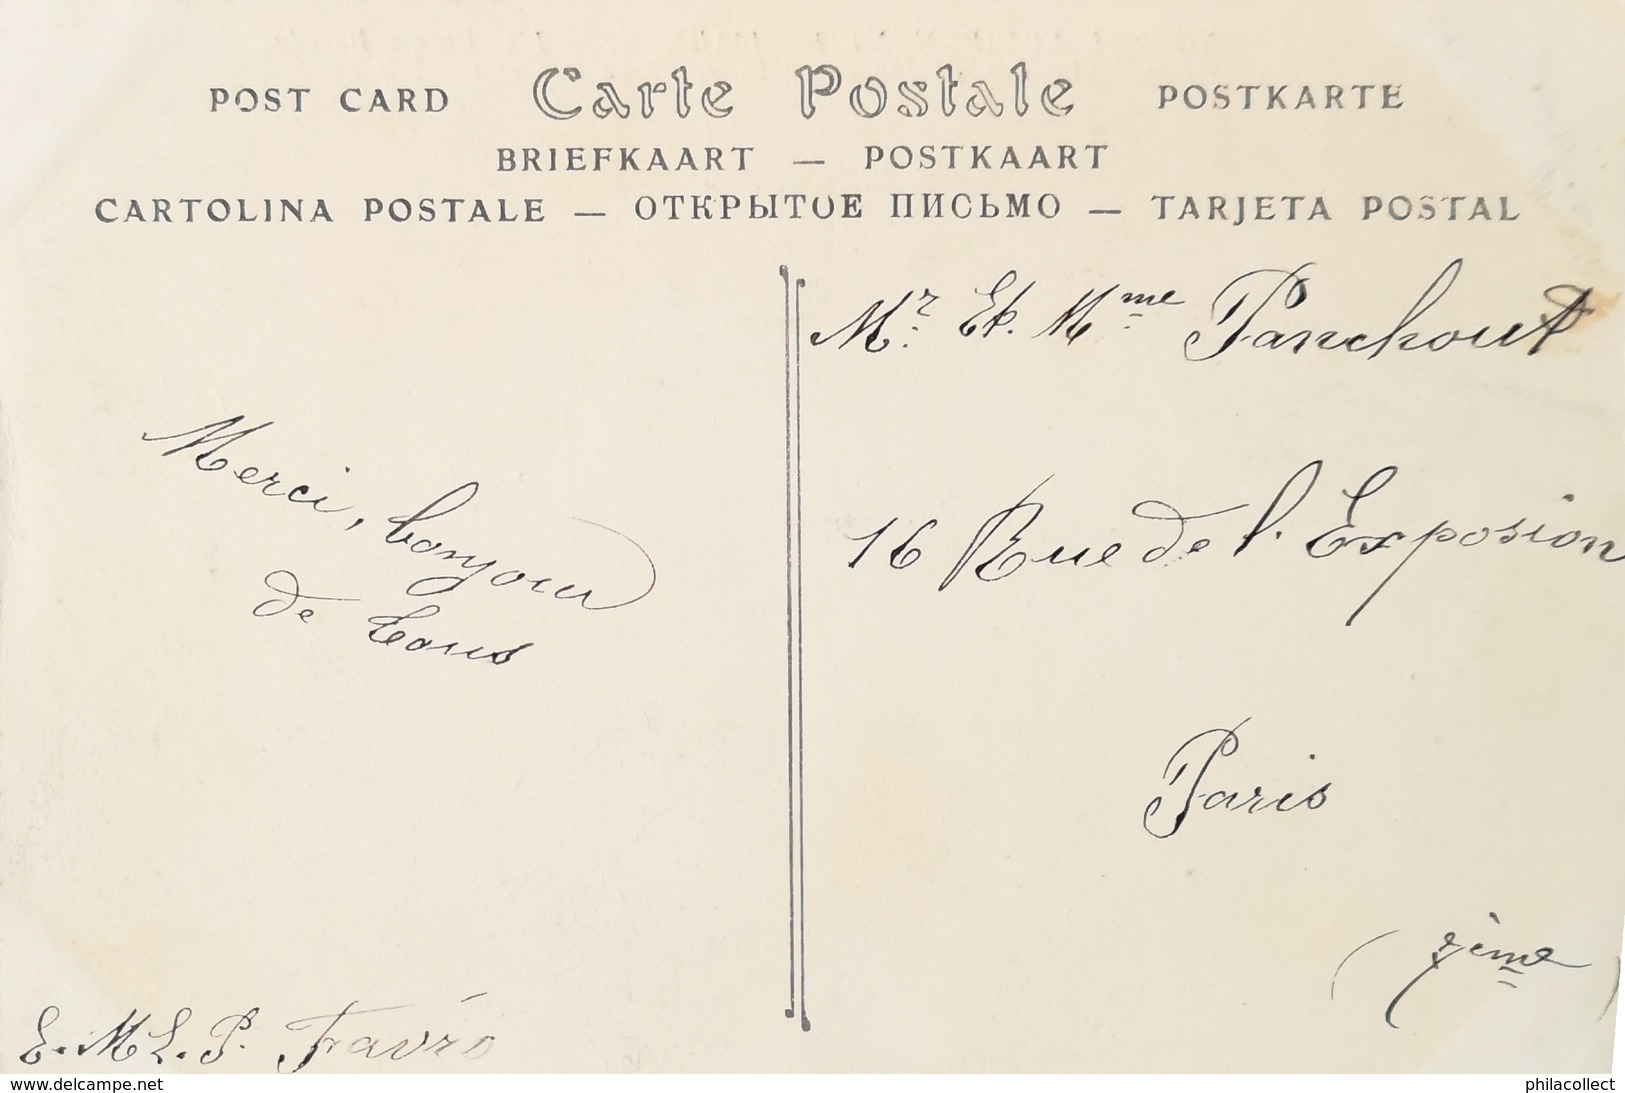 POST CARD Carte Postale POSTKARTE
BRIEFKAART — POSTKAART
CARTOLINA POSTALE — ОТКРЫТОЕ ПИСЬМО — TARJETA POSTAL
Mr. Et. Mme Panchout
16 Rue de l'Exposion
Paris
(7ème)
Merci, bonjour
de tous
E. M L. P. Favré
www.delcampe.net
philacollect